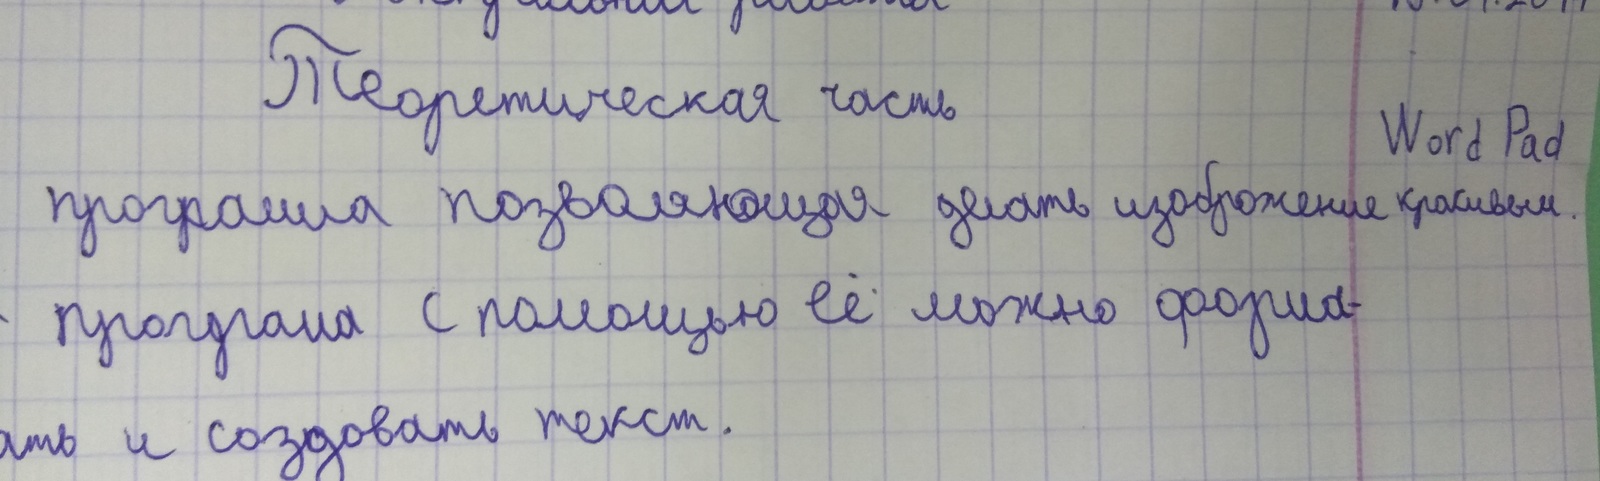 Теоретическая часть
Word Pad
программа позваляющая делать изображение красивым.
- програма с помощью её можно форма-
ать и создовать текст.